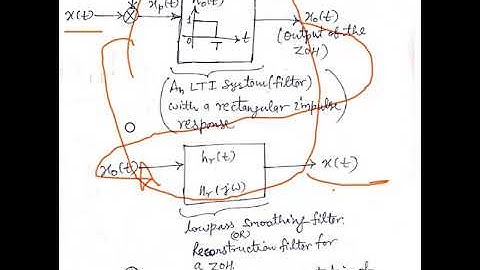 x(t) xp(t) ho(t) xo(t)
1
0 T t
(output of the
ZOH)
(An LTI System (filter)
with a rectangular impulse
response)
xo(t) hr(t) x(t)
Hr(jω)
Lowpass smoothing filter
(OR)
Reconstruction filter for
a ZOH